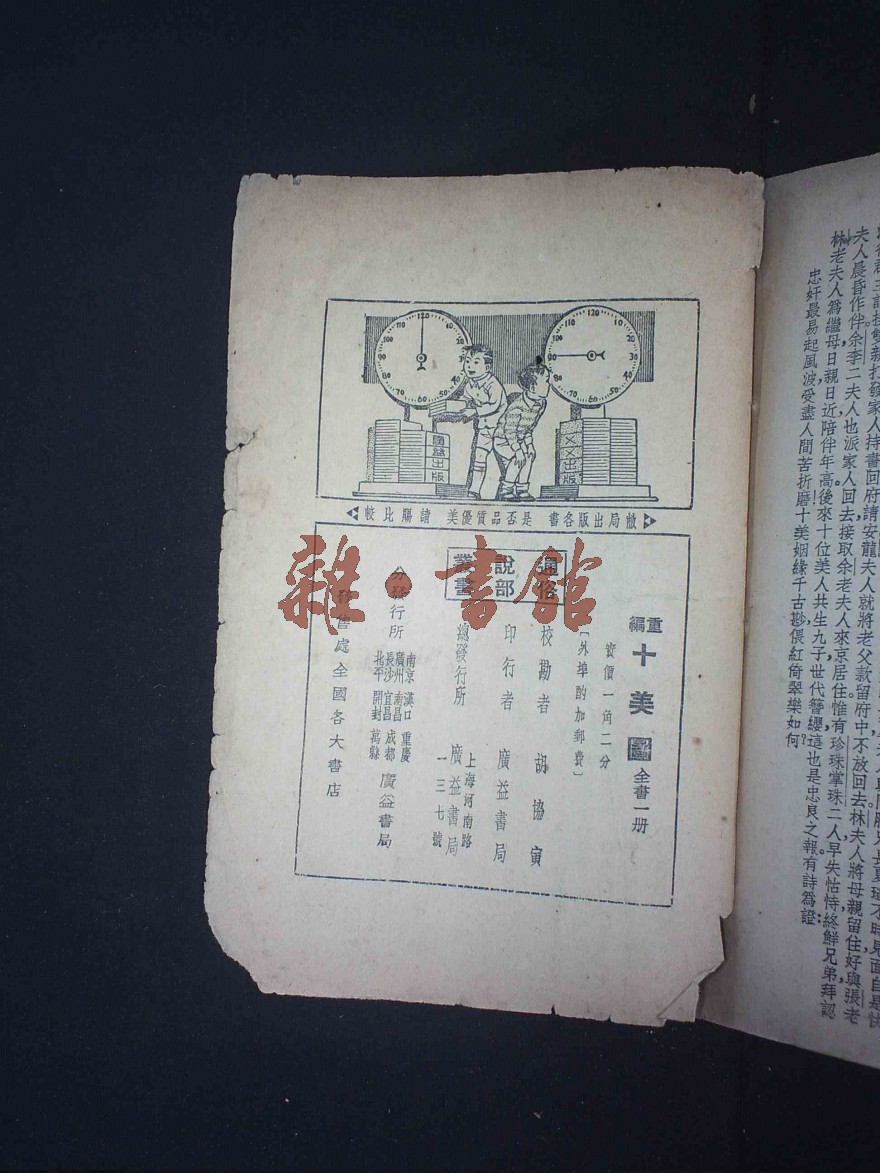 夫人晨昏作伴余李二夫人也派家人回去接取余老夫人來京居住惟有珍珠掌珠二人早失怙恃終鮮兄弟拜認
林老夫人為繼母日親日近陪伴年高後來十位美人共生九子世代簪纓這也是忠良之報有詩為證
忠奸最易起風波受盡人間苦折磨十美姻緣千古尠偎紅倚翠樂如何
廣益出版
××出版
敝局出版各書 是否品質優美 請賜比較
重編十美圖 全書一册
實價一角二分
〔外埠酌加郵費〕
通俗
說部
叢書
校勘者 胡協寅
印行者 廣益書局
總發行所 上海河南路
廣益書局
一三七號
分發行所
南京 漢口 重慶
廣州 南昌 成都
長沙 宜昌
北平 開封 萬縣
廣益書局
發售處 全國各大書店
雜·書館